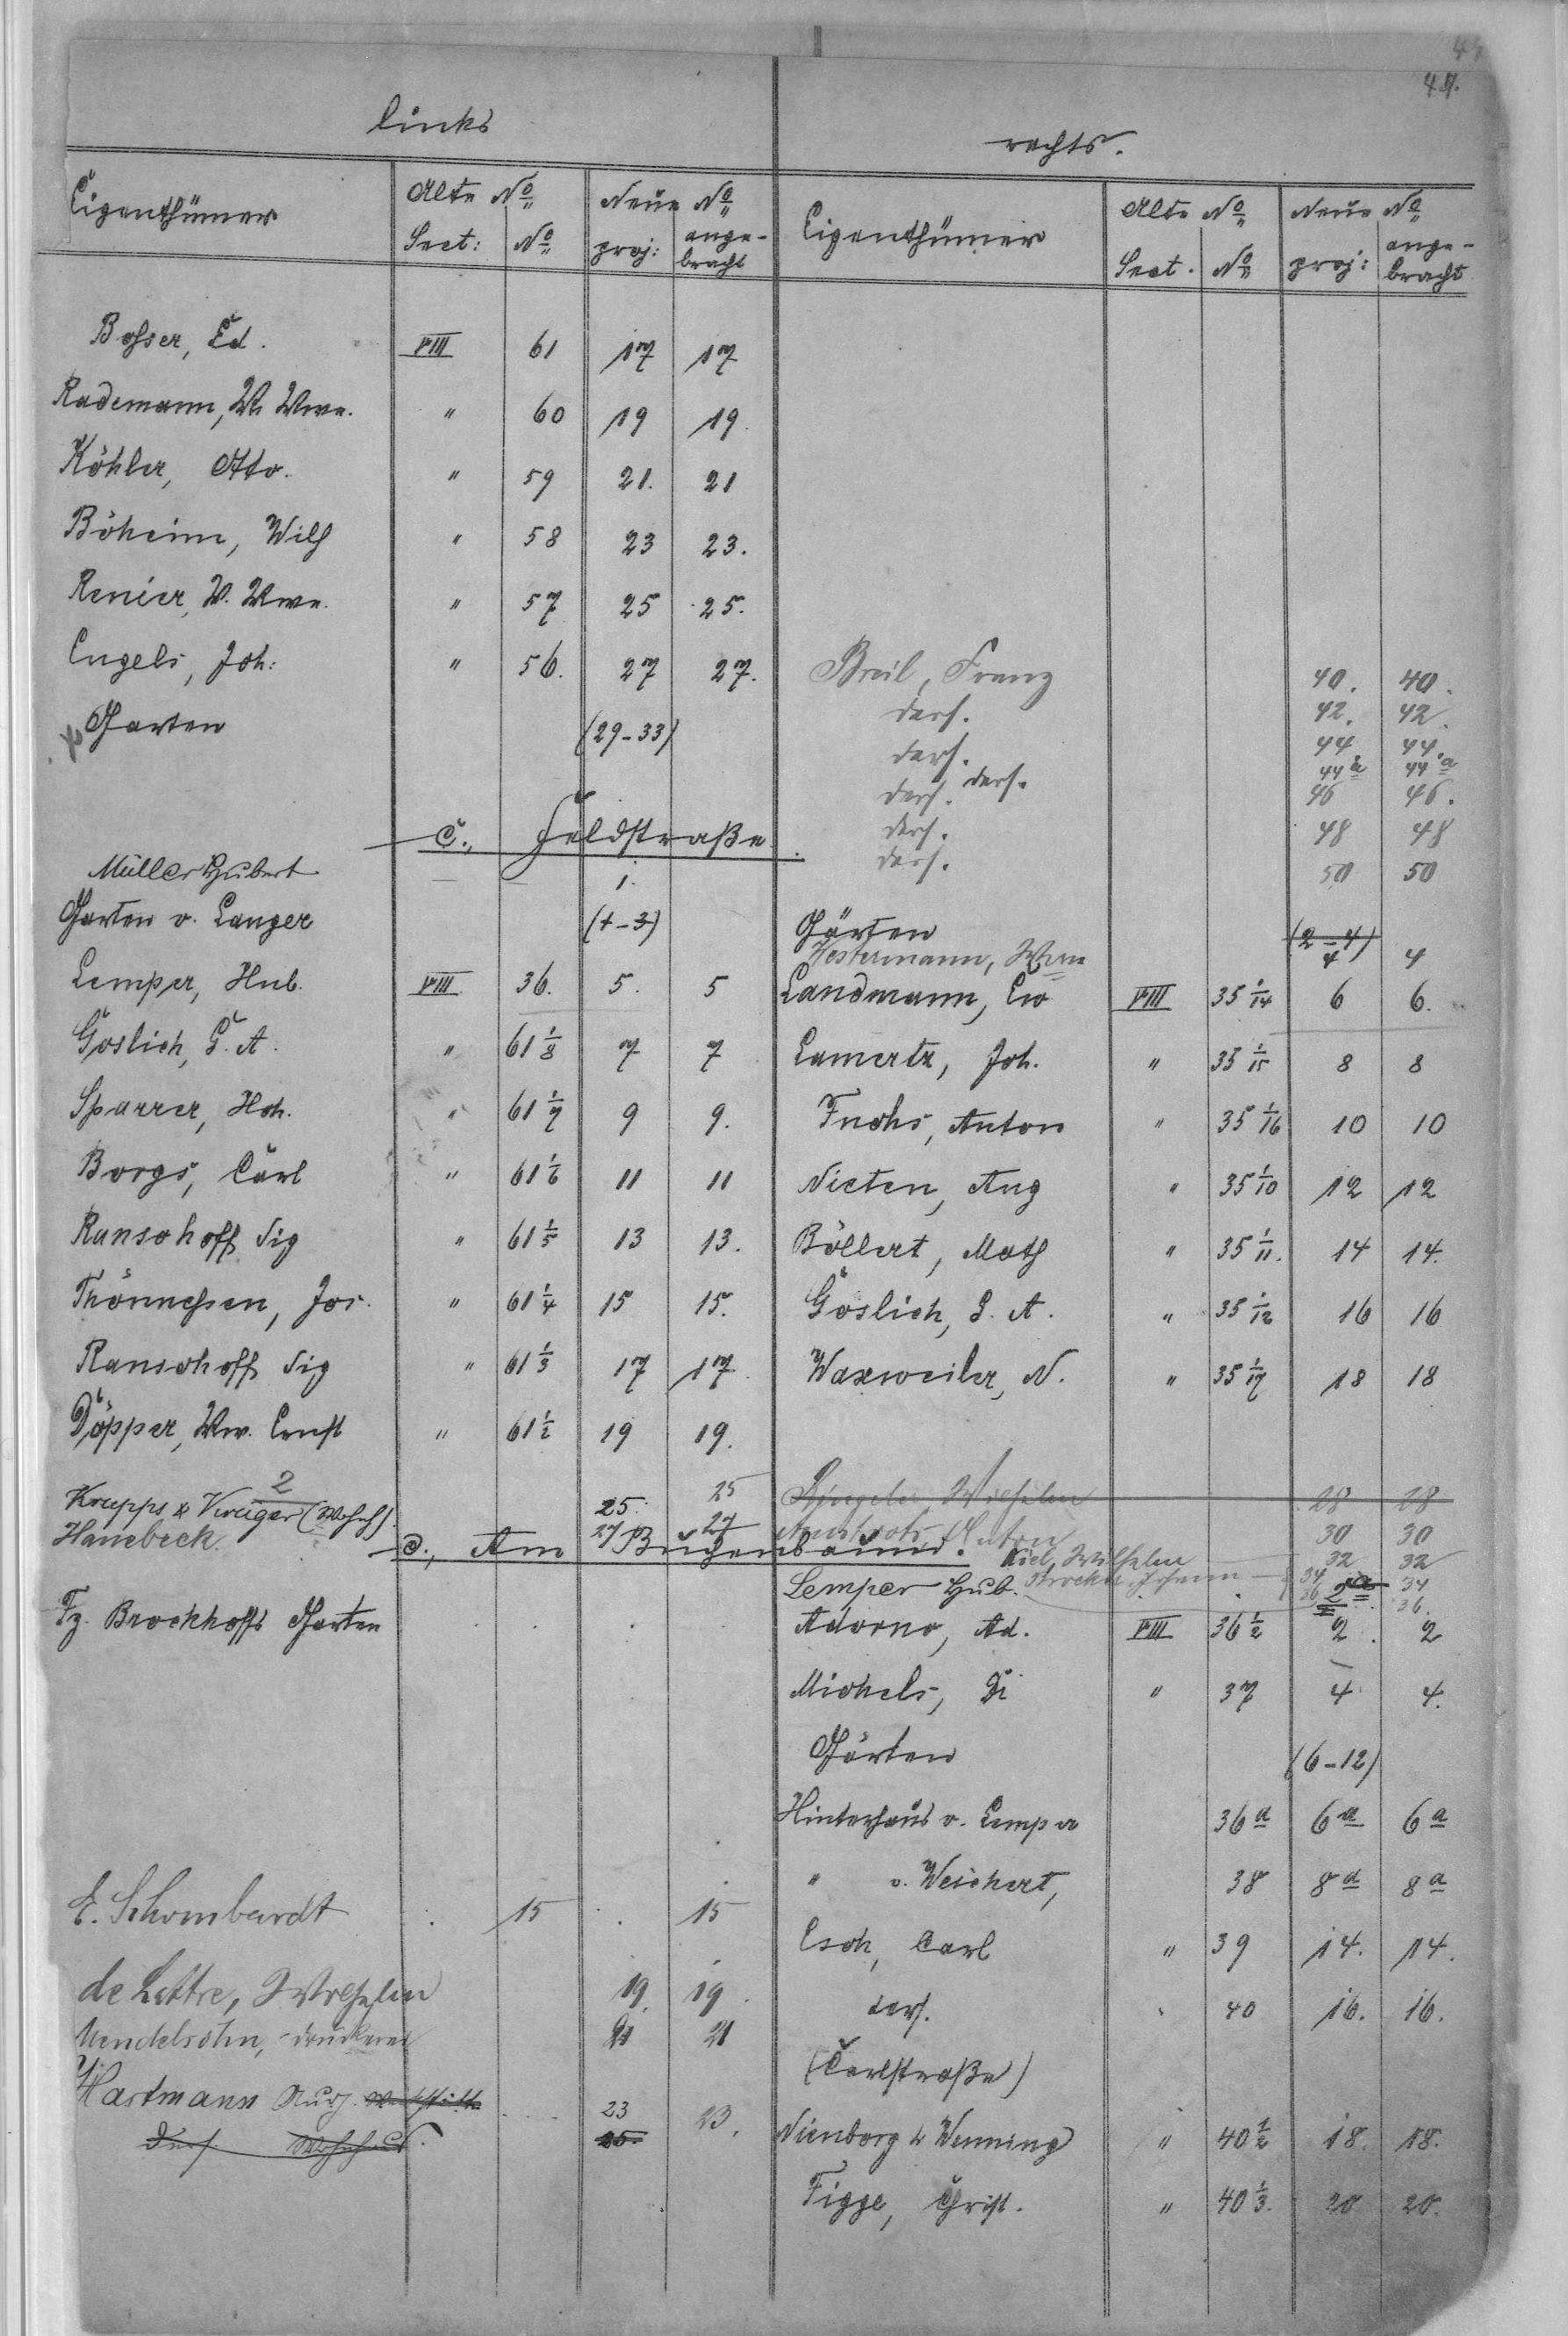 links
rechts.
Eigenthümer Alte No Neue No Eigenthümer Alte No Neue No
Sect: No proj: ange-bracht Sect. No proj: ange-bracht
Bosser, Ed. VIII 61 17 17
Rademann, W. Wwe. " 60 19 19.
Köhler, Otto. " 59 21. 21
Böheim, Wilh " 58 23 23.
Renier, W. Wwe. " 57 25 25.
Engels, Joh: " 56. 27 27. Breil, Franz 40. 40.
ders. 42. 42.
Garten (29-33) ders. 44. 44.
ders. 44a 44a
ders. 46 46.
C., Feldstraße ders. 48 48
Müller Hubert 1. ders. 50 50
Garten v. Langer (1-3) Gärten (2-4)
Westermann, Wwe 4 4
Lemper, Hub. VIII 36. 5. 5 Landmann, Ew VIII 35 1/14 6 6.
Göslich, G. A. " 61 1/8 7 7 Lamertz, Joh. " 35 1/15 8 8
Sparrer, Hch. " 61 1/7 9 9. Fuchs, Anton " 35 1/16 10 10
Borgs, Carl " 61 1/6 11 11 Nieten, Aug " 35 1/10 12 12
Ransohoff Sig " 61 1/5 13 13. Böllert, Math " 35 1/11. 14 14.
Thönnessen, Jos. " 61 1/4 15 15. Göslich, G. A. " 35 1/12 16 16
Ransohoff Sig " 61 1/3 17 17. Waxweiler, N. " 35 1/17 18 18
Döpper, Ww. Ernst " 61 1/2 19 19.
Krupps & Krüger (Wohnh) 25. 25 Wilhelm 28 28
Hanebeck 27 27 Anton 30 30
d., Am Buchenbaum. Kiel, Wilhelm 32 32
Lemper Hub. Johann 34 34
2a 36 36.
Fz. Brockhoffs Garten Adorno, Ad. VIII 36 1/2 2. 2
Michels, Di " 37 4 4.
Gärten (6-12)
Hinterhaus v. Lemper 36a 6a 6a
" v. Weichert, 38 8a 8a
E. Schombardt 15 15
Esch, Carl " 39 14. 14.
de Lettre, Wilhelm 19. 19.
ders. " 40 16. 16.
Mendelsohn, Druckerei 21 21
(Carlstraße)
Hartmann Aug. Werkstätte 23 23.
Nienborg & Wenning " 40 1/2 18. 18.
Ders. Wohnhaus. 25.
Figge, Christ. " 40 1/3. 20 20.